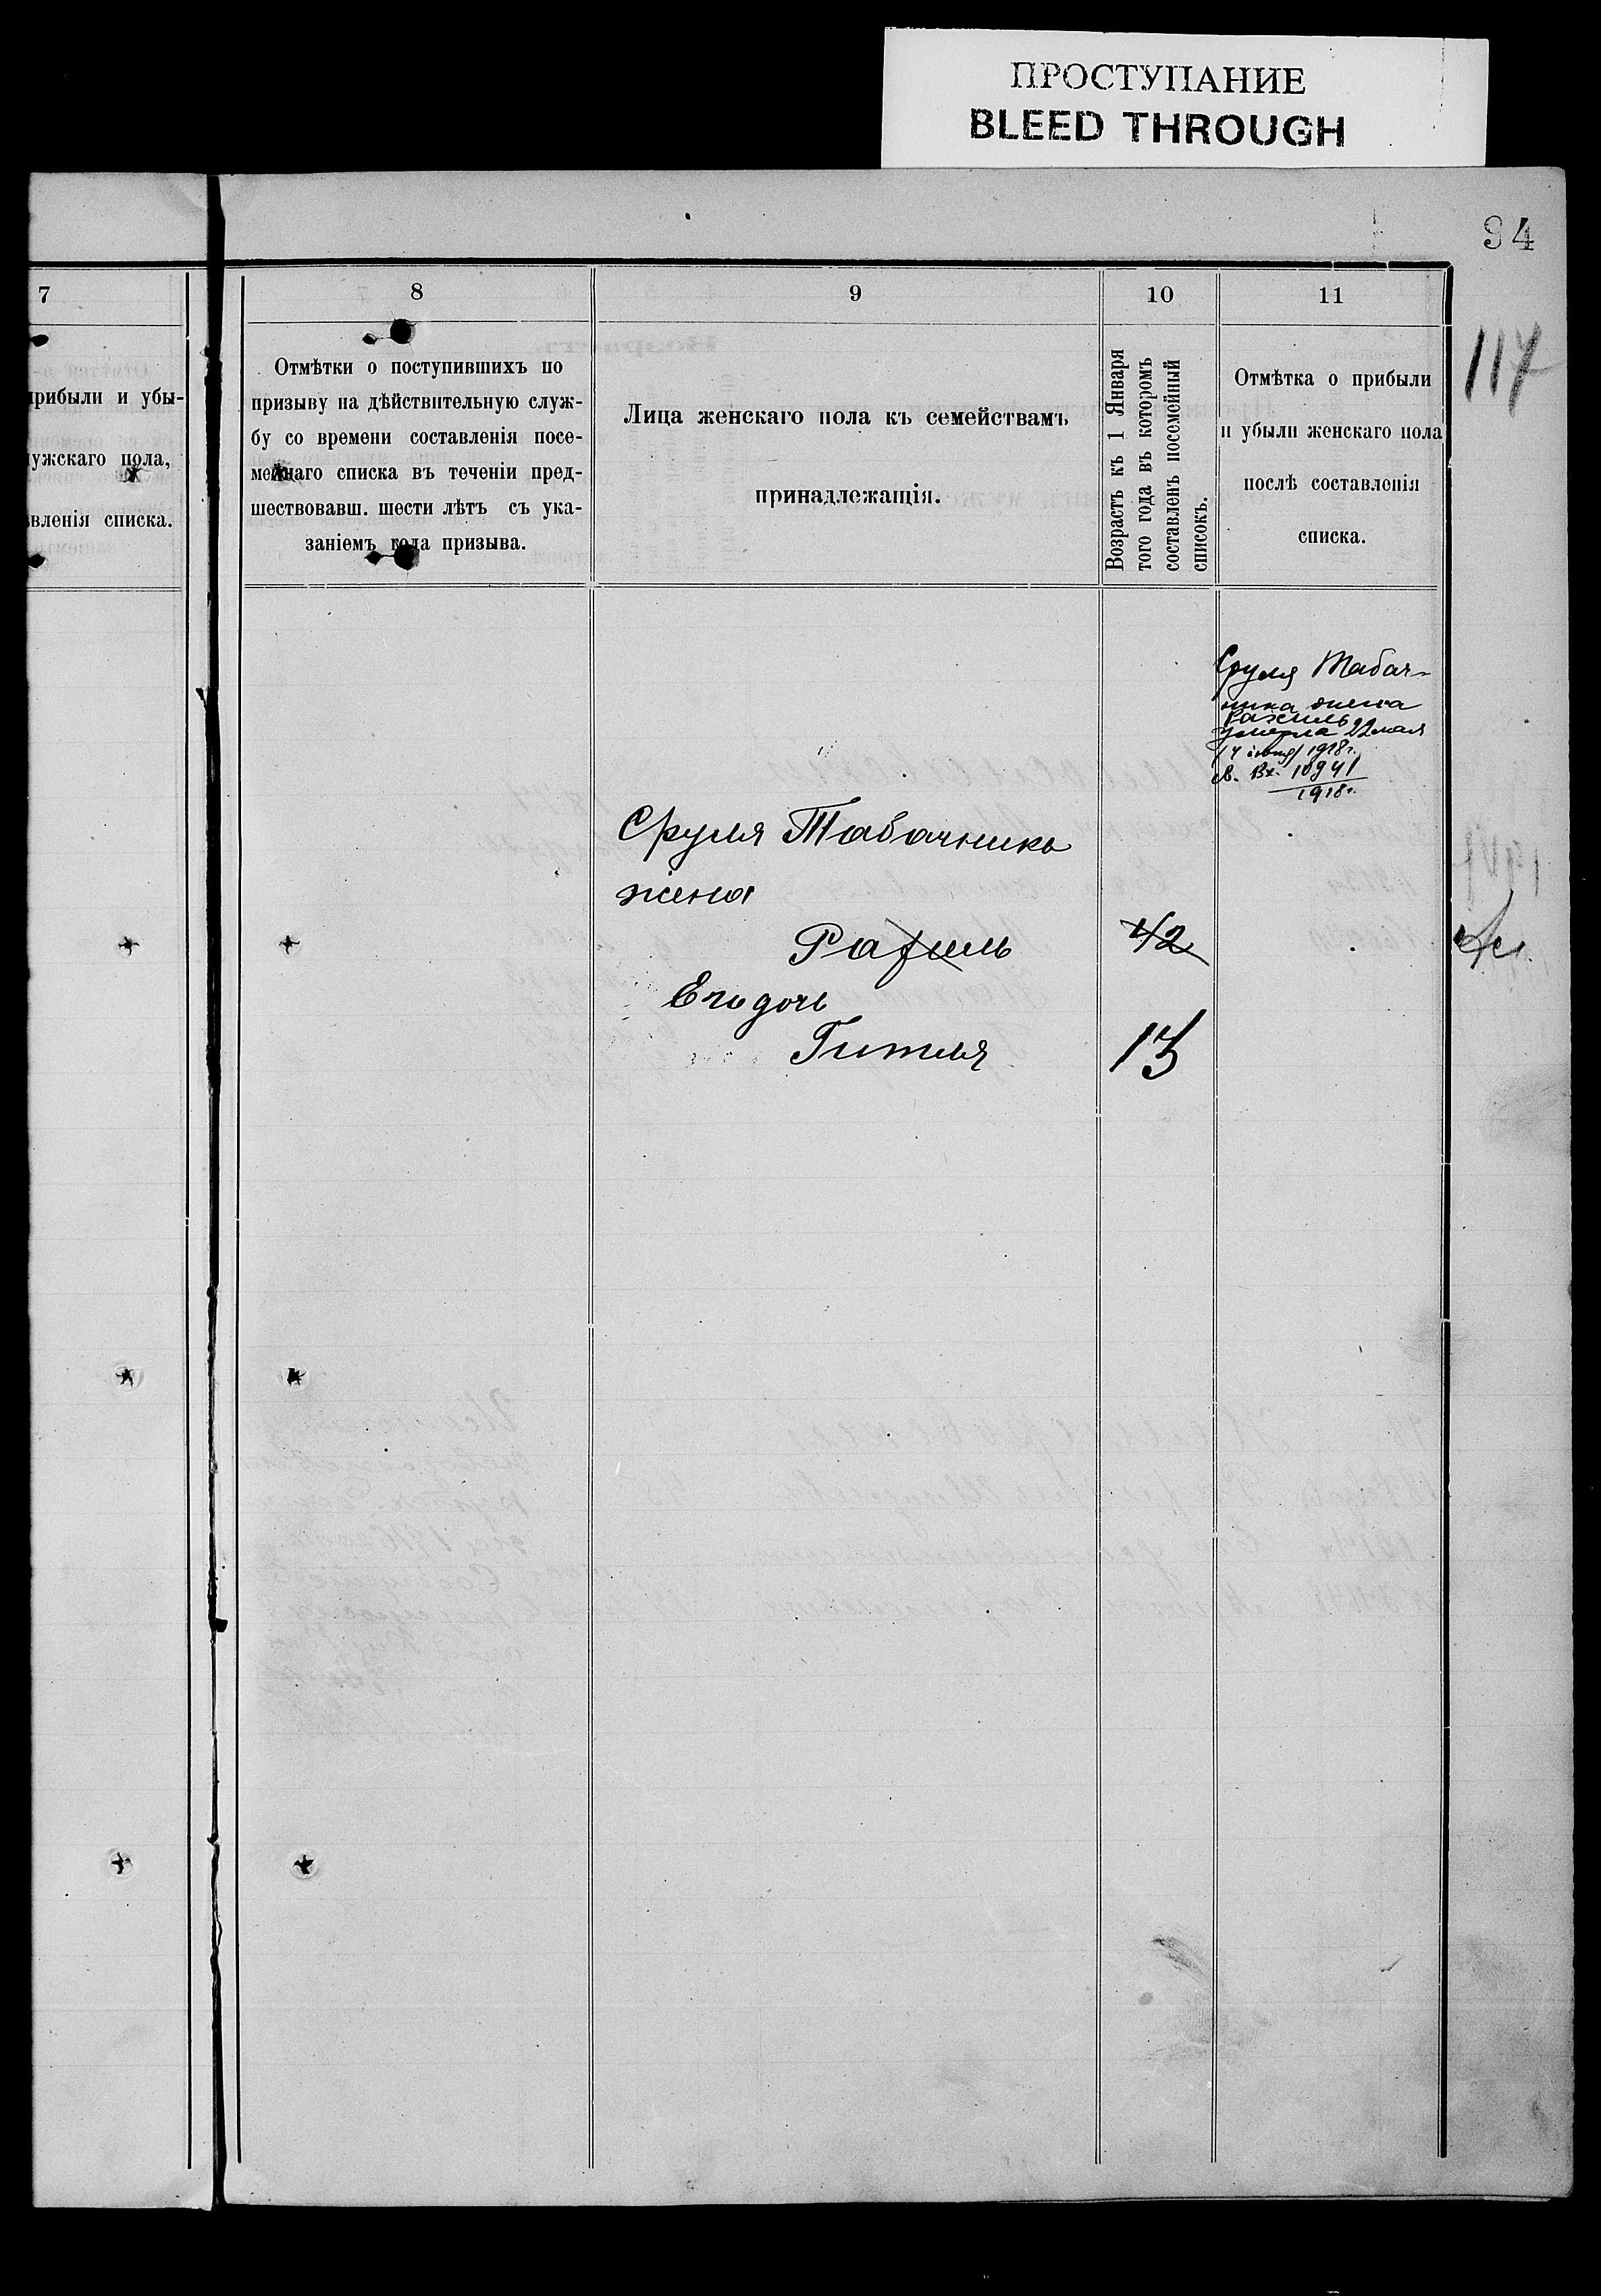 ПРОСТУПАНИЕ
BLEED THROUGH
94
117
7
рибыли и убы-
ужскаго пола,
вленія списка.
8
Отмѣтки о поступившихъ по
призыву на дѣйствительную служ-
бу со времени составленія посе-
мейнаго списка въ теченіи пред-
шествовавш. шести лѣтъ съ ука-
заніемъ года призыва.
9
Лица женскаго пола къ семействамъ
принадлежащія.
10
Возрастъ къ 1 Января
того года въ которомъ
составленъ посемейный
списокъ.
11
Отмѣтка о прибыли
и убыли женскаго пола
послѣ составленія
списка.
Сруля Табач-
ника жена
Рахиль
умерла 22 мая
(4 іюня) 1918 г.
Вх. 10941
1918 г.
Сруля Табачника
жена
Рахиль 42
Его дочь
Гитля 13